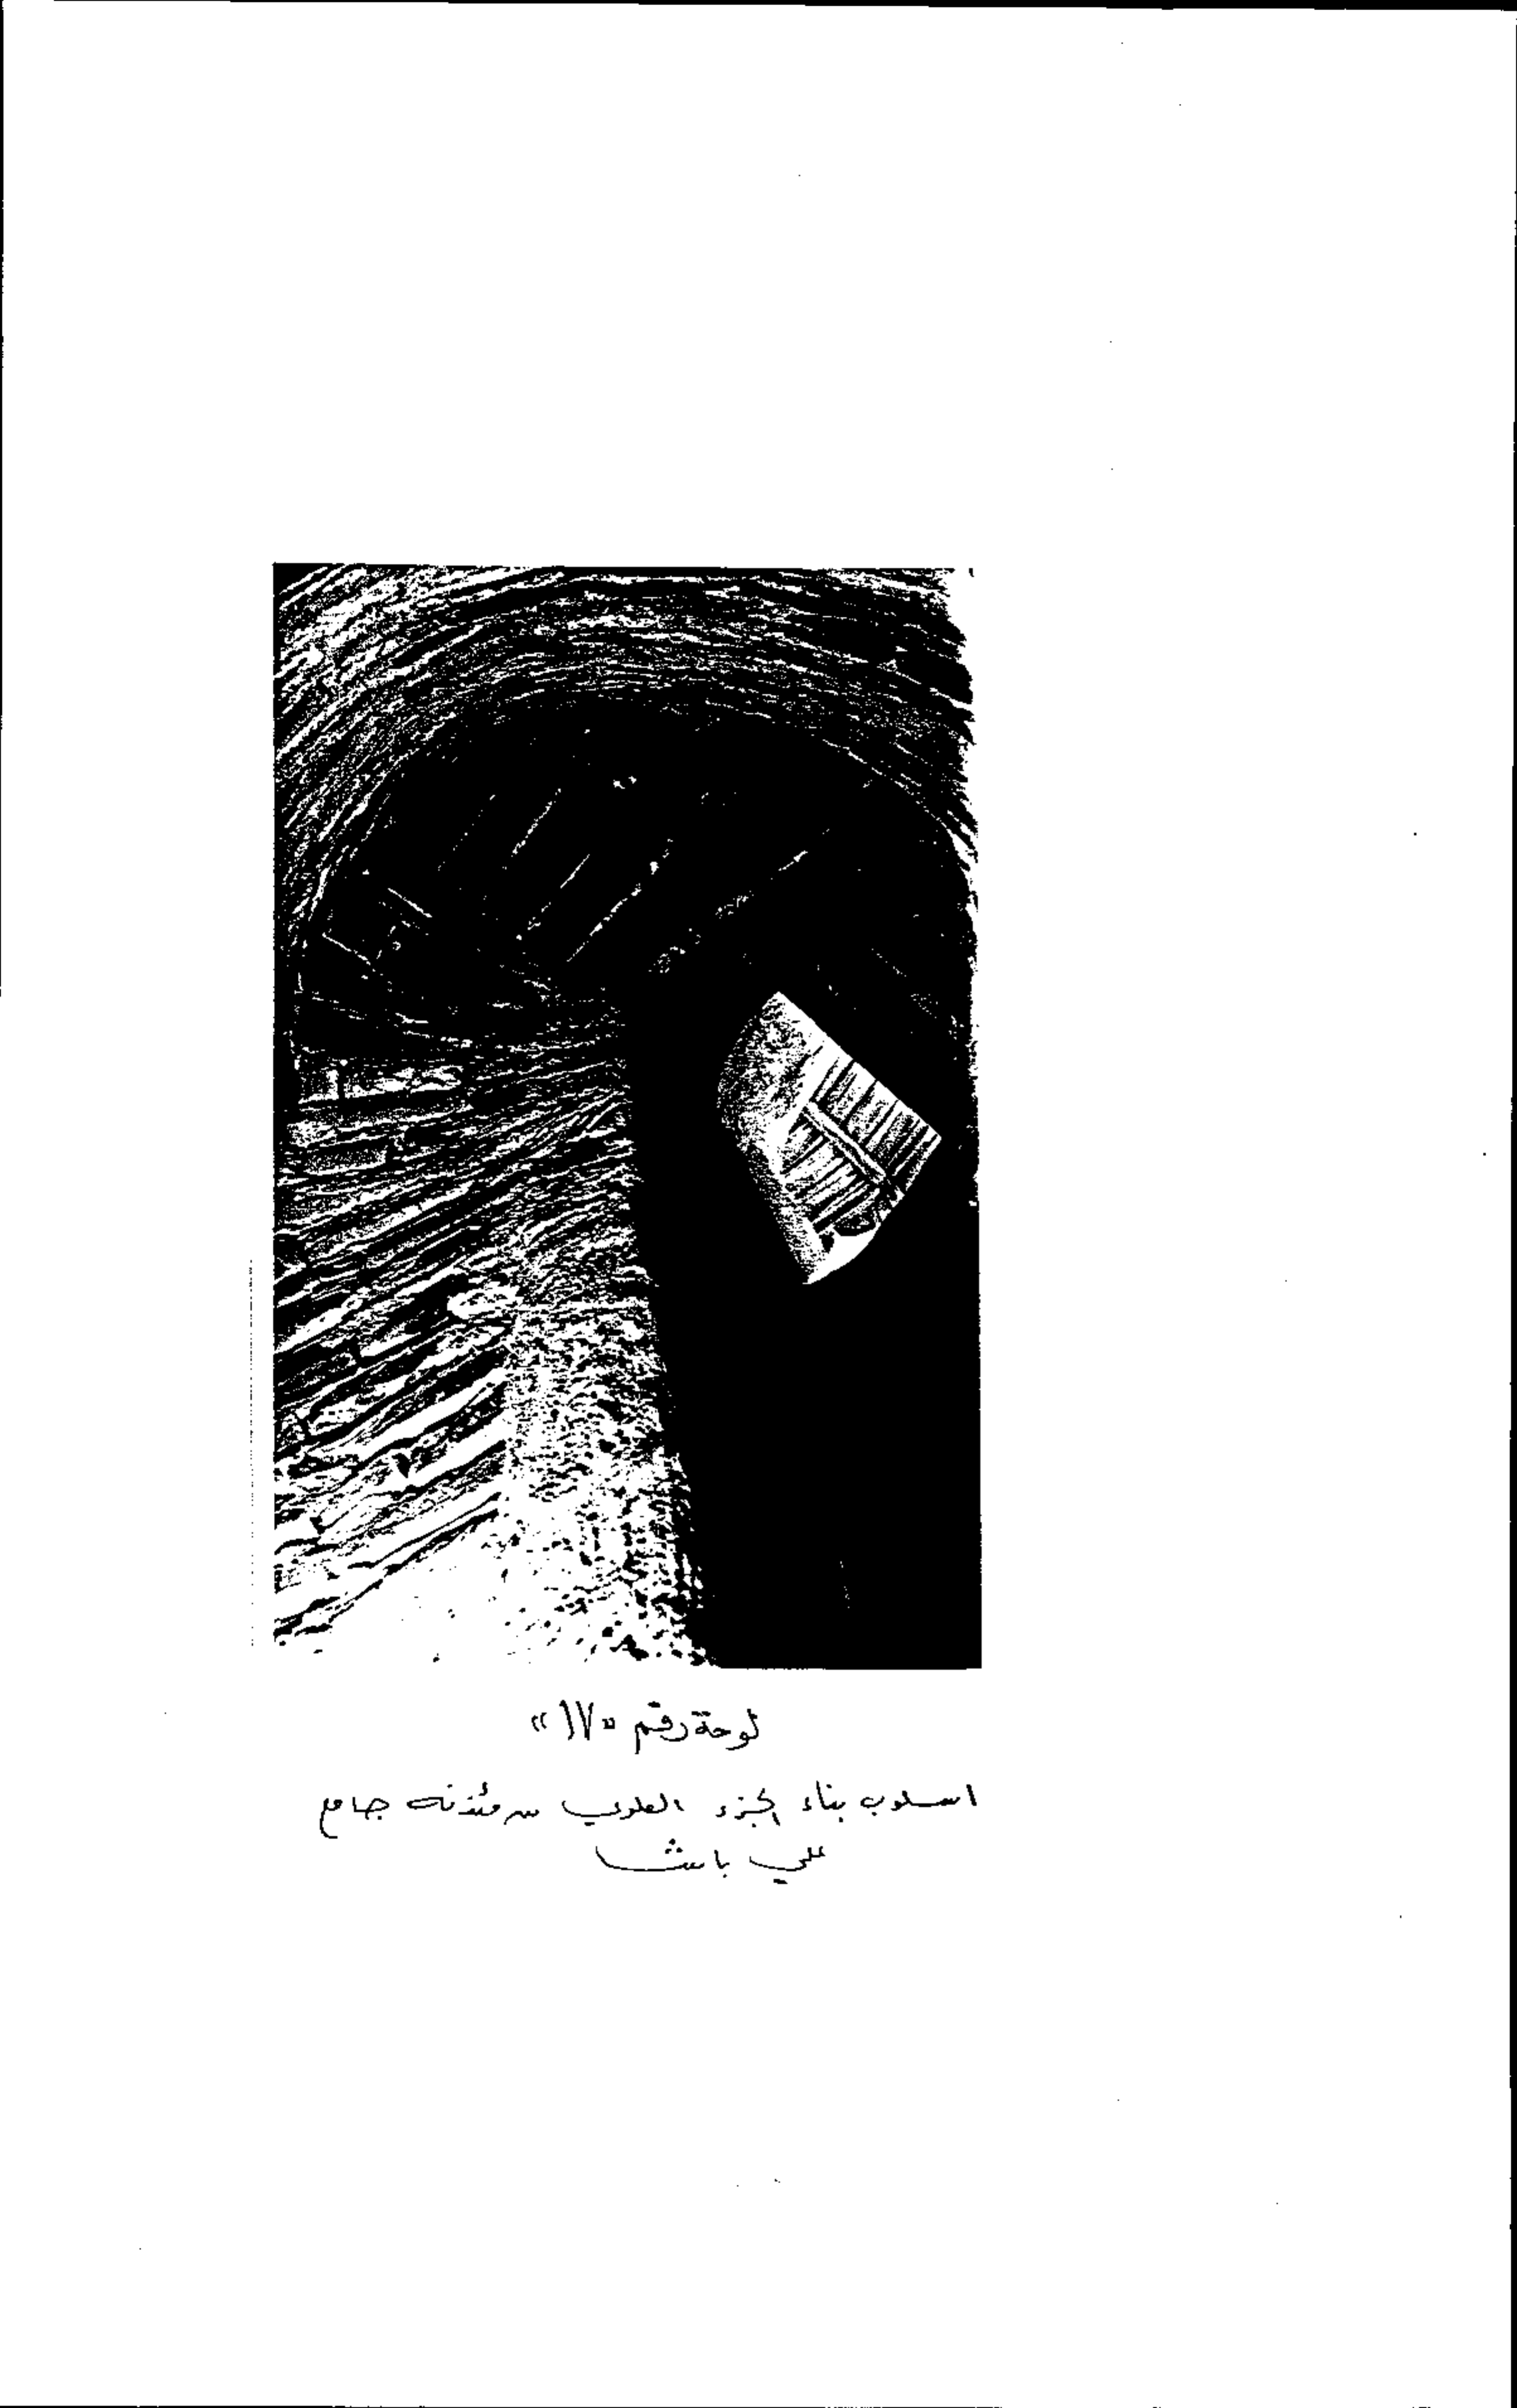 لوحة رقم «١٧»
اسلوب بناء الجزء العلوي من مئذنة جامع
علي باشا